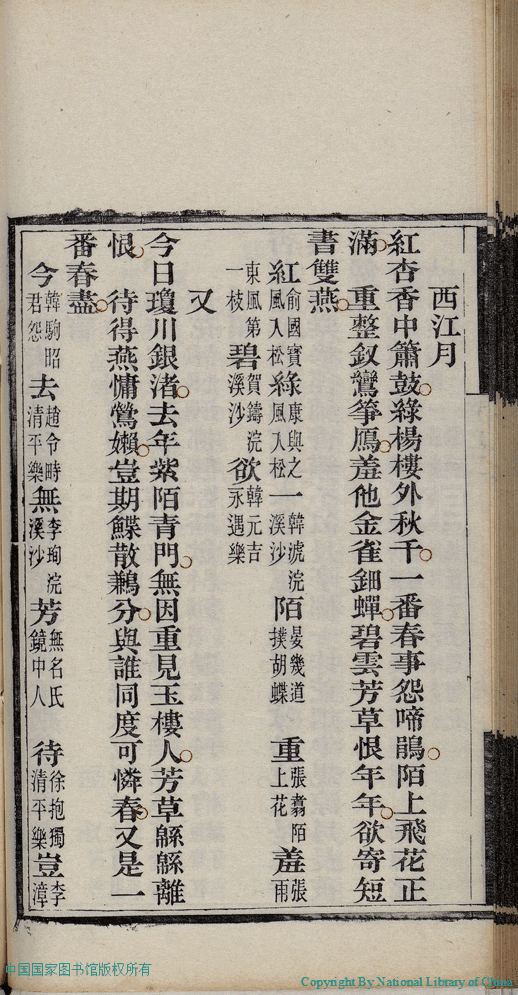 西江月
紅杏香中簫鼓綠楊樓外秋千一番春事怨啼鵑陌上飛花正
滿　重整釵鸞箏鴈羞他金雀鈿蟬碧雲芳草恨年年欲寄短
書雙燕
紅俞國寶風入松綠康與之風入松一韓淲浣溪沙陌晏幾道撲胡蝶　重張翥陌上花羞張雨
東風第一枝碧賀鑄浣溪沙欲韓元吉永遇樂
又
今日瓊川銀渚去年紫陌青門無因重見玉樓人芳草緜緜離
恨　待得燕慵鶯嬾豈期鰈散鶼分與誰同度可憐春又是一
番春盡
今韓駒昭君怨去趙令時清平樂無李珣浣溪沙芳無名氏鏡中人　待徐抱獨清平樂豈李漳
中国国家图书馆版权所有
Copyright By National Library of China